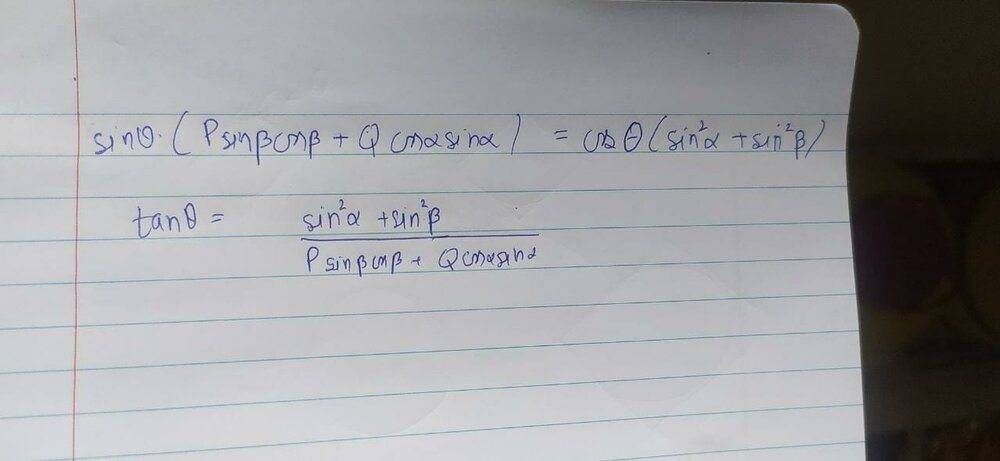 sinθ. (P sinβ cosβ + Q cosα sinα) = cosθ (sin²α + sin²β)
tanθ = sin²α + sin²β
P sinβ cosβ + Q cosα sinα